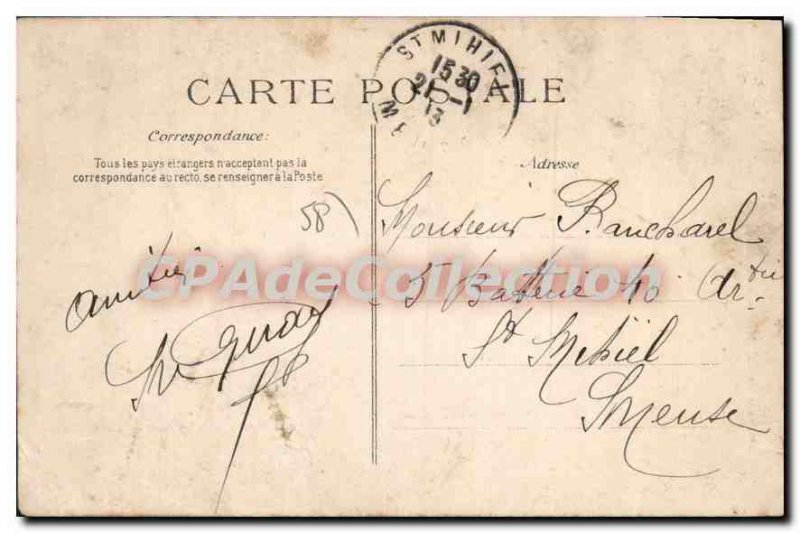 CARTE POSTALE
ST MIHIEL
15 30
21 - 1
13
Correspondance:
Tous les pays étrangers n'acceptent pas la
correspondance au recto, se renseigner à la Poste
Adresse
58
Monsieur Rancharel
5 Batterie 40 Artie
St Mihiel
Meuse
amitiés
CPAdeCollection